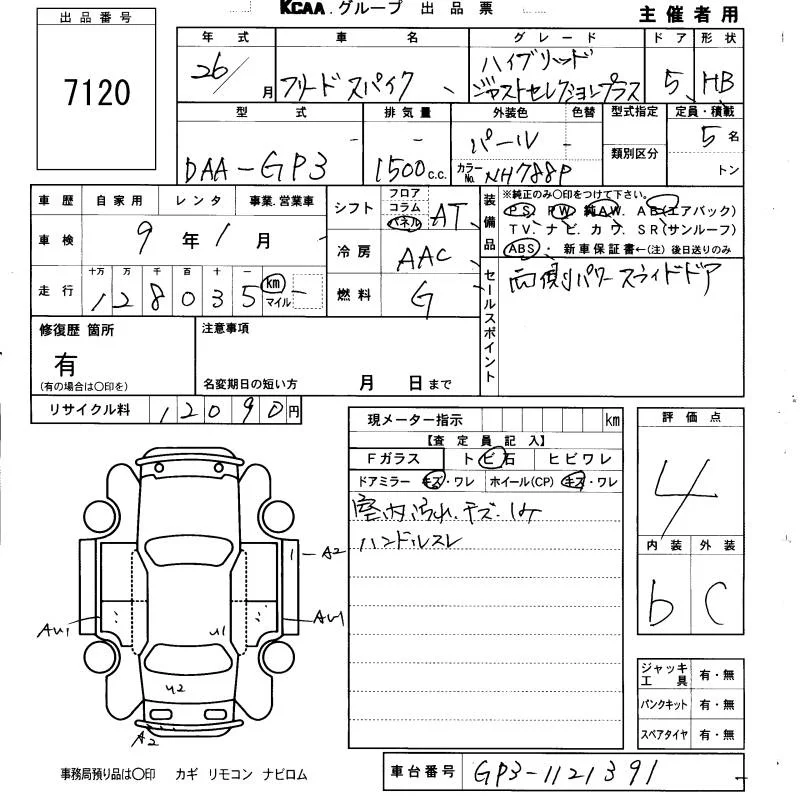 KCAA.グループ 出品票
主催者用
出品番号
7120
年式 車名 グレード ドア 形状
26/ 月 フリードスパイク ハイブリッド
ジャストセレクションプラス 5 HB
型式 排気量 外装色 色替 型式指定 定員・積載
DAA-GP3 - 1500c.c. - パール - 5名
カラーNo. NH788P 類別区分 トン
車歴 自家用 レンタ 事業.営業車
車検 9年1月
走行 十万 万 千 百 十 一
128035 km マイル
シフト フロア コラム パネル AT
冷房 AAC
燃料 G
装備品 ※純正のみ○印をつけて下さい。
PS. PW. 純AW. AB(エアバック)
TV. ナビ. カワ. SR(サンルーフ)
ABS・ 新車保証書←(注)後日送りのみ
セールスポイント 両側パワースライドドア
修復歴 箇所 注意事項
有
(有の場合は○印を) 名変期日の短い方 月 日まで
リサイクル料 12090円
現メーター指示 km
【査定員記入】
Fガラス トビ石 ヒビワレ
ドアミラー キズ・ワレ ホイール(CP) キズ・ワレ
室内汚れ.キズ.
ハンドルスレ
評価点
4
内装 外装
b C
1 A2
AU1 U1 AU1
U2
A2
ジャッキ工具 有・無
パンクキット 有・無
スペアタイヤ 有・無
事務局預り品は○印 カギ リモコン ナビロム
車台番号 GP3-1121391